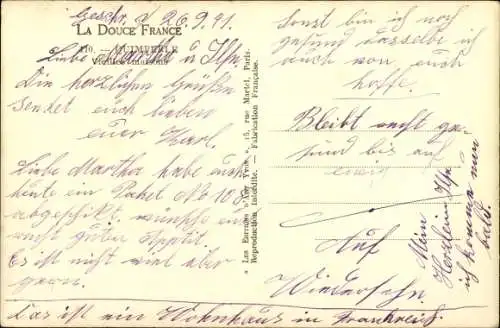 Geschr. d. 26.9.41.
LA DOUCE FRANCE
110. — QUIMPERLÉ
Vieilles maisons
Liebe Martha u Ilse
Die herzlichen Grüße
sendet euch lieben
euer Karl.
Liebe Martha habe euch
heute ein Paket No 108
abgeschikt, wünsche euch
recht guten Appetit.
Es ist nicht viel aber
gern.
Das ist ein Wohnhaus in Frankreich.
« Les Editions d'Art Yvon », 15, rue Martel, Paris.
Reproduction interdite. — Fabrication Française.
Sonst bin ich noch
gesund dasselbe ich
auch von euch
hoffe.
Bleibt recht ge-
sund bis auf
ewig
Auf
Wiedersehn.
Mein
Herzlein Ilse
ich komme nun
bald.